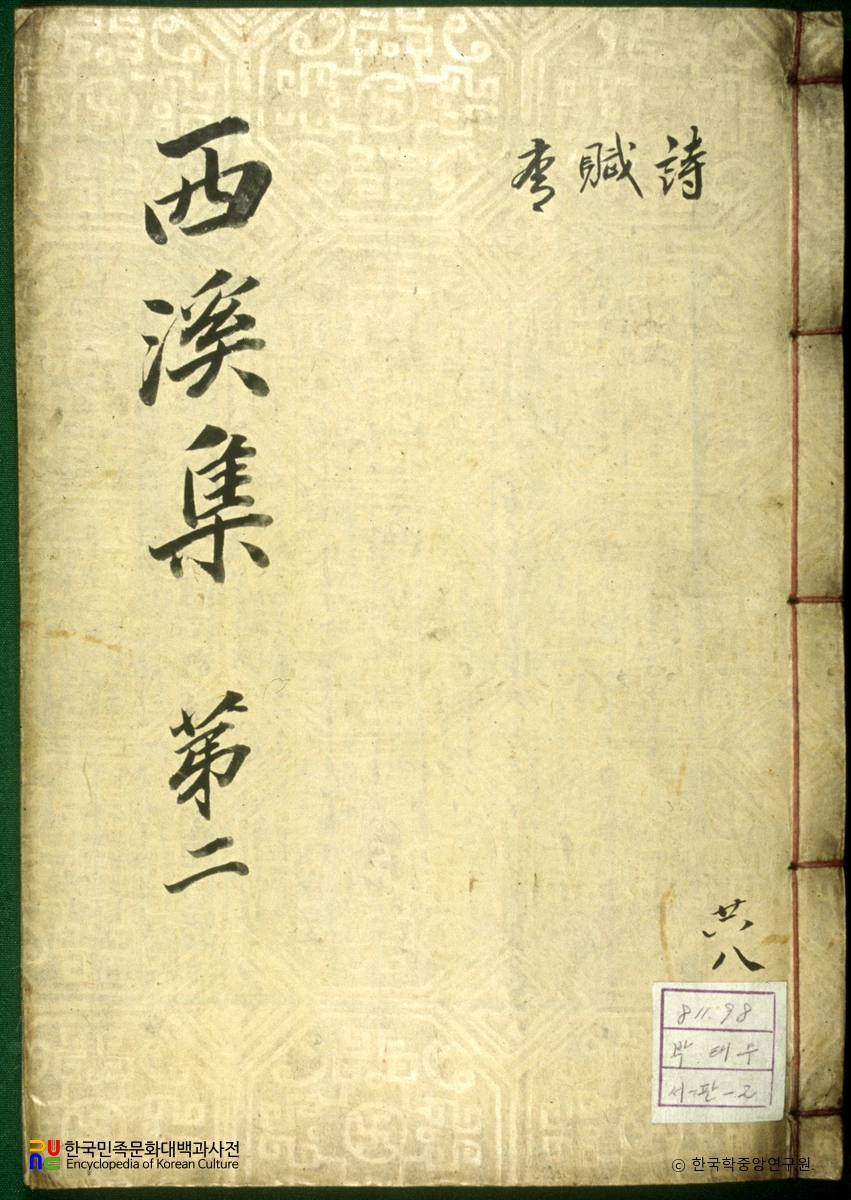 詩賦
西溪集 苐二
共八
811.98
박 태무
서-판-2
한국민족문화대백과사전
Encyclopedia of Korean Culture
© 한국학중앙연구원.